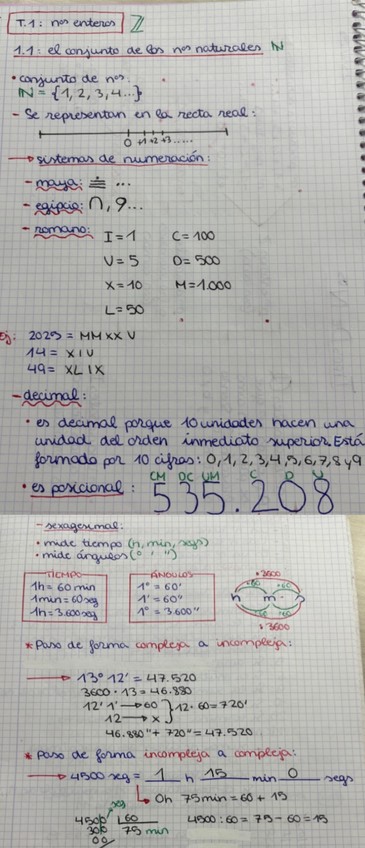 T.1: nos enteros ℤ
1.1: el conjunto de los nos naturales ℕ
• conjunto de nos:
ℕ = {1, 2, 3, 4...}
- Se representan en la recta real:
0 +1 +2 +3 .....
→ sistemas de numeración:
- maya: ...
- egipcio: ∩, 9...
- romano: I = 1 C = 100
V = 5 D = 500
X = 10 M = 1.000
L = 50
Ej: 2025 = MM XX V
14 = XIV
49 = XL IX
- decimal:
• es decimal porque 10 unidades hacen una
unidad del orden inmediato superior. Está
formado por 10 cifras: 0,1,2,3,4,5,6,7,8 y 9
CM DC UM C D U
• es posicional: 535.208
- sexagesimal:
• mide tiempo (h, min, segs)
• mide ángulos (° ' ")
TIEMPO ÁNGULOS
1h = 60 min 1° = 60'
1min = 60 seg 1' = 60"
1h = 3.600 seg 1° = 3.600"
• 3600
•60 •60
h m s
: 60 : 60
: 3600
* Paso de forma compleja a incompleja:
→ 13° 12' = 47.520
3600 · 13 = 46.880
12' 1' → 60 } 12 · 60 = 720'
12 → x
46.880" + 720" = 47.520
* Paso de forma incompleja a compleja:
→ 4500 seg = 1 h 15 min 0 segs
0h 75 min = 60 + 15
seg
4500 60 4500 : 60 = 75 - 60 = 15
300 75 min
00